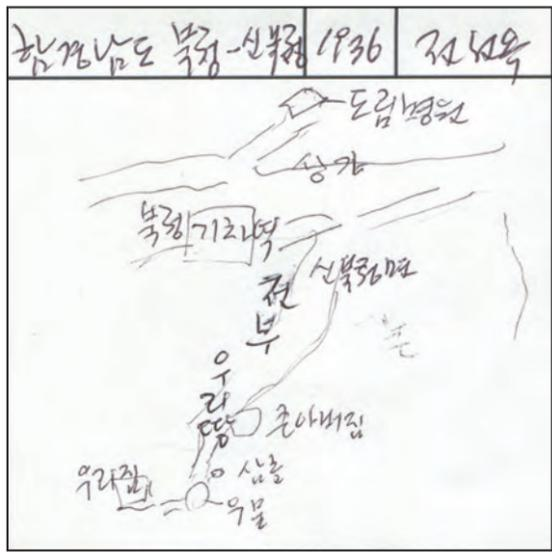 함경남도 북청-신북청 1936 전선옥
도립병원
상가
북청 기차역
신북청면
전부
우리땅
논
큰아버지집
삼촌
우리집
우물